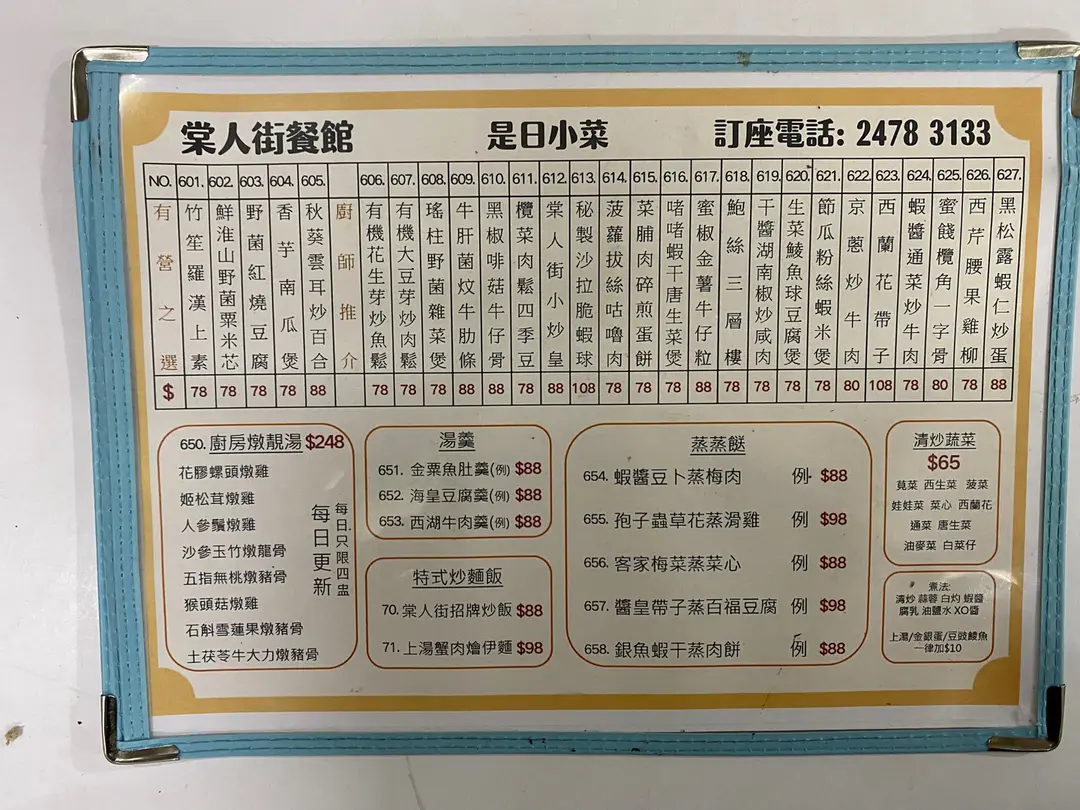 棠人街餐館
是日小菜
訂座電話: 2478 3133
NO. 601. 602. 603. 604. 605. 606. 607. 608. 609. 610. 611. 612. 613. 614. 615. 616. 617. 618. 619. 620. 621. 622. 623. 624. 625. 626. 627.
有營之選
竹笙羅漢上素
鮮淮山野菌粟米芯
野菌紅燒豆腐
香芋南瓜煲
秋葵雲耳炒百合
廚師推介
有機花生芽炒魚鬆
有機大豆芽炒肉鬆
瑤柱野菌雜菜煲
牛肝菌炆牛肋條
黑椒啡菇牛仔骨
欖菜肉鬆四季豆
棠人街小炒皇
秘製沙拉脆蝦球
菠蘿拔絲咕嚕肉
菜脯肉碎煎蛋餅
啫啫蝦干唐生菜煲
蜜椒金薯牛仔粒
鮑絲三層樓
干醬湖南椒炒咸肉
生菜鯪魚球豆腐煲
節瓜粉絲蝦米煲
京蔥炒牛肉
西蘭花帶子
蝦醬通菜炒牛肉
蜜餞欖角一字骨
西芹腰果雞柳
黑松露蝦仁炒蛋
$ 78 78 78 78 88 78 78 78 88 88 78 88 108 78 78 78 88 78 78 78 78 80 108 78 80 78 88
650. 廚房燉靚湯 $248
花膠螺頭燉雞
姬松茸燉雞
人參鬚燉雞
沙參玉竹燉龍骨
五指無桃燉豬骨
猴頭菇燉雞
石斛雪蓮果燉豬骨
土茯苓牛大力燉豬骨
每日只限四盅
每日更新
湯羹
651. 金粟魚肚羹(例) $88
652. 海皇豆腐羹(例) $88
653. 西湖牛肉羹(例) $88
特式炒麵飯
70. 棠人街招牌炒飯 $88
71. 上湯蟹肉燴伊麵 $98
蒸蒸餸
654. 蝦醬豆卜蒸梅肉 例 $88
655. 孢子蟲草花蒸滑雞 例 $98
656. 客家梅菜蒸菜心 例 $88
657. 醬皇帶子蒸百福豆腐 例 $98
658. 銀魚蝦干蒸肉餅 例 $88
清炒蔬菜
$65
莧菜 西生菜 菠菜
娃娃菜 菜心 西蘭花
通菜 唐生菜
油麥菜 白菜仔
煮法:
清炒 蒜蓉 白灼 蝦醬
腐乳 油鹽水 XO醬
上湯/金銀蛋/豆豉鯪魚
一律加$10